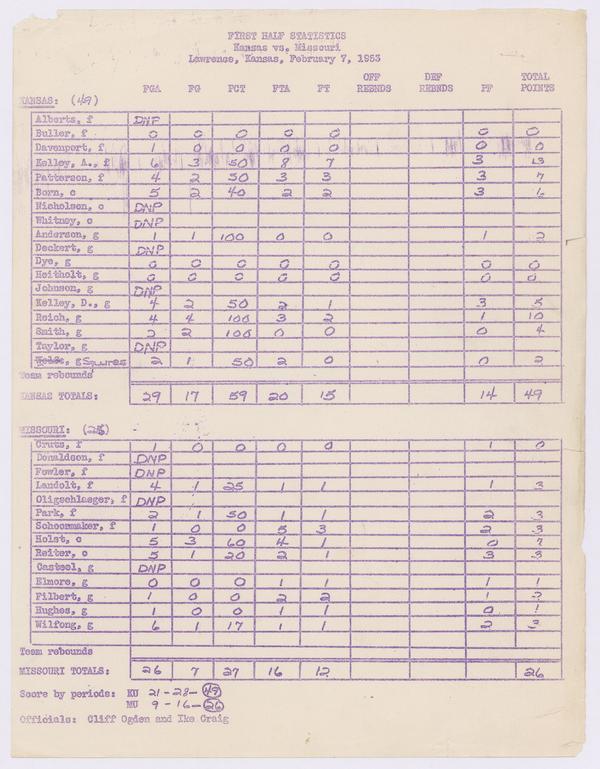 FIRST HALF STATISTICS
Kansas vs. Missouri
Lawrence, Kansas, February 7, 1953
FGA FG PCT FTA FT OFF REBNDS DEF REBNDS PF TOTAL POINTS
KANSAS: (49)
Alberts, f DNP
Buller, f 0 0 0 0 0 0 0
Davenport, f 1 0 0 0 0 0 0
Kelley, A., f 6 3 50 8 7 3 13
Patterson, f 4 2 50 3 3 3 7
Born, c 5 2 40 2 2 3 6
Nicholson, c DNP
Whitney, c DNP
Anderson, g 1 1 100 0 0 1 2
Deckert, g DNP
Dye, g 0 0 0 0 0 0 0
Heitholt, g 0 0 0 0 0 0 0
Johnson, g DNP
Kelley, D., g 4 2 50 2 1 3 5
Reich, g 4 4 100 3 2 1 10
Smith, g 2 2 100 0 0 0 4
Taylor, g DNP
, g Squires 2 1 50 2 0 0 2
Team rebounds
KANSAS TOTALS: 29 17 59 20 15 14 49
MISSOURI:
Cruts, f 1 0 0 0 0 1 0
Donaldson, f DNP
Fowler, f DNP
Landolt, f 4 1 25 1 1 1 3
Oligschlaeger, f DNP
Park, f 2 1 50 1 1 2 3
Schoonmaker, f 1 0 0 5 3 2 3
Holst, c 5 3 60 4 1 0 7
Reiter, c 5 1 20 2 1 3 3
Casteel, g DNP
Elmore, g 0 0 0 1 1 1 1
Filbert, g 1 0 0 2 2 1 2
Hughes, g 1 0 0 1 1 0 1
Wilfong, g 6 1 17 1 1 2 3
Team rebounds
MISSOURI TOTALS: 26 7 27 16 12 26
Score by periods: KU 21-28-49
MU 9-16-26
Officials: Cliff Ogden and Ike Craig